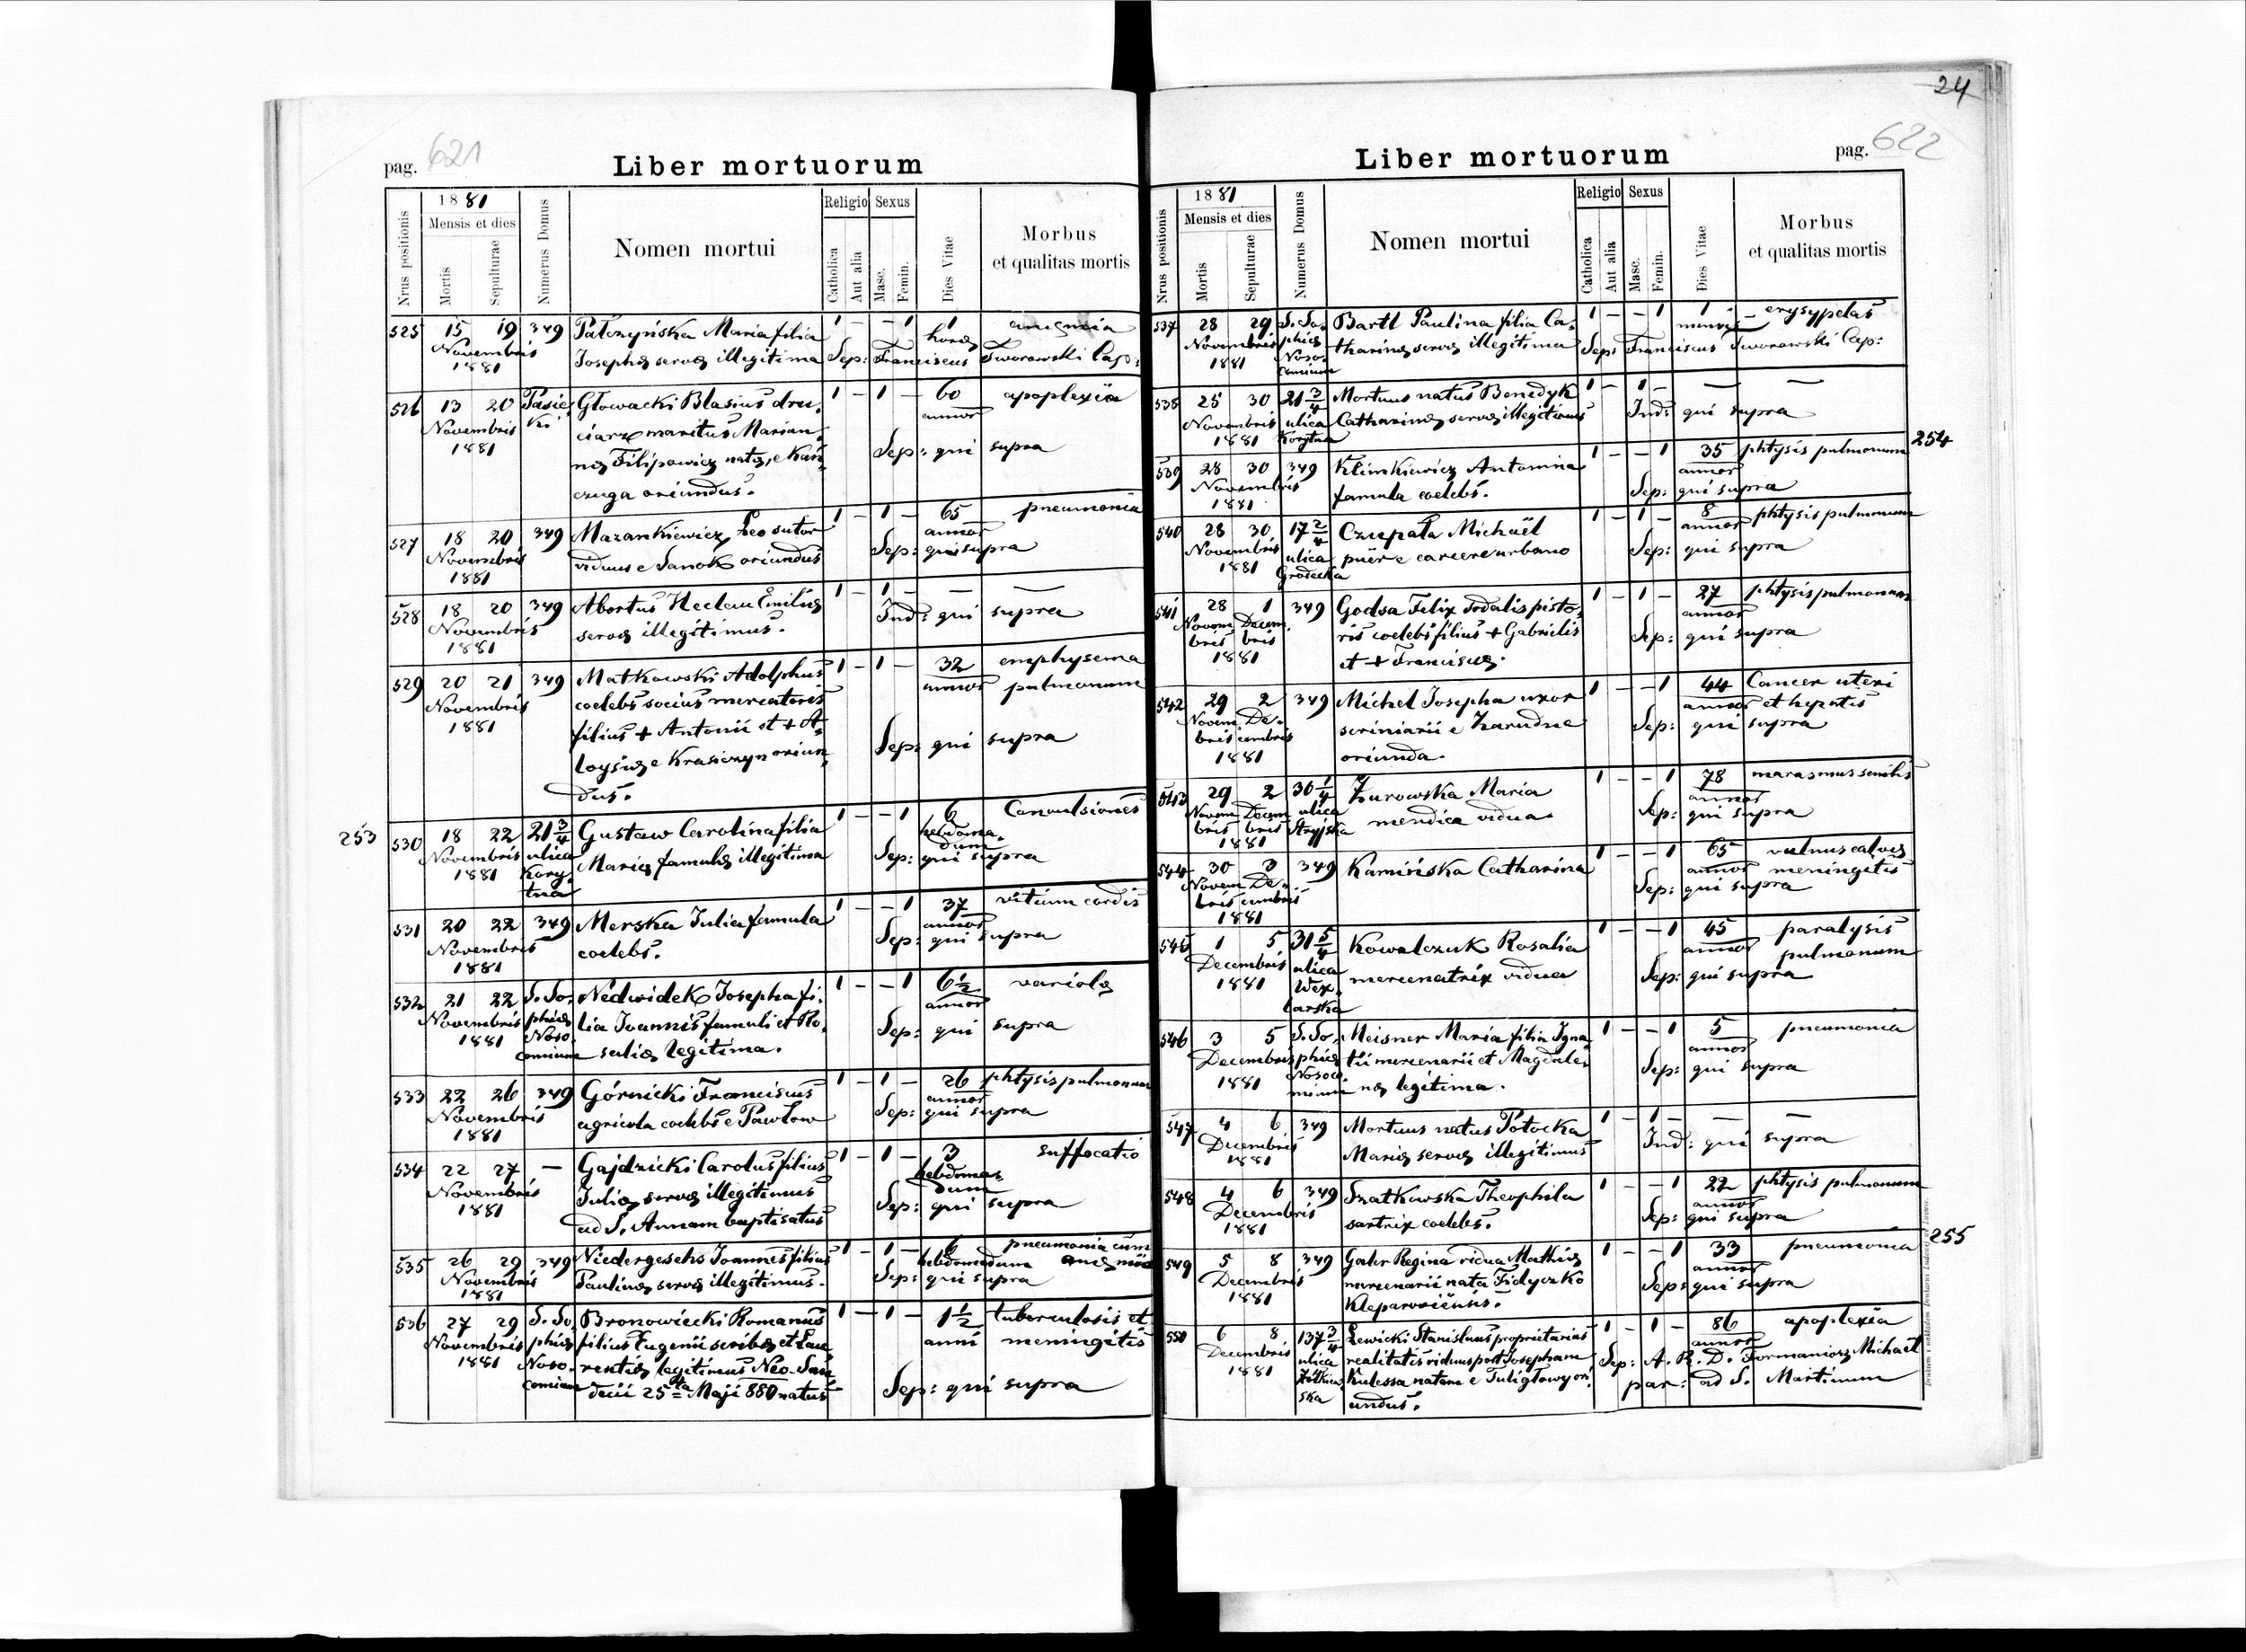 24
pag. 621
Liber mortuorum
Nrus positionis
1881
Mensis et dies
Mortis
Sepulturae
Numerus Domus
Nomen mortui
Religio
Catholica
Aut alia
Sexus
Masc.
Femin.
Dies Vitae
Morbus
et qualitas mortis
525 15 19 349 Pałczyńska Maria filia 1 - - 1 1
Novembris Josephæ servæ illegitima horæ
1881 Sep: Franciscus Sworowski Cap:
526 13 20 Pasie Głowacki Blasius dru, 1 - 1 - 60 apoplexia
Novembris ki ciarz maritus Marian, annor
1881 næ Filipowicz natæ, e Kań, Sep: qui supra
czuga oriundus.
527 18 20 349 Mazankiewicz Leo sutor 1 - 1 - 65 pneumonia
Novembris viduus e Sanok oriundus annor
1881 Sep: qui supra
528 18 20 349 Abortus Heclem Emiliæ 1 - 1 - — —
Novembris servæ illegitimus. Ind: qui supra
1881
529 20 21 349 Matkowski Adolphus 1 - 1 - 32 emphysema
Novembris coelebs socius mercatoris annor pulmonum
1881 filius + Antonii et + A,
loysiæ e Krasiczyn oriun, Sep: qui supra
dus.
253
530 18 22 21 3/4 Gustaw Carolina filia 1 - - 1 6 Convulsiones
Novembris ulica Mariæ famulæ illegitima hebdoma,
1881 Kory, dum
tna Sep: qui supra
531 20 22 349 Merska Julia famula 1 - - 1 37 vitium cordis
Novembris coelebs. annor
1881 Sep: qui supra
532 21 22 S. So, Nedwidek Josepha fi, 1 - - 1 6 1/2 variolæ
Novembris phiæ lia Joannis famuli et Ro, annor
1881 Noso, saliæ legitima. Sep: qui supra
comium
533 22 26 349 Górnicki Franciscus 1 - 1 - 26 phtysis pulmonum
Novembris agricola coelebs e Pawłow annor
1881 Sep: qui supra
534 22 27 — Gajdzicki Carolus filius 1 - 1 - 3 suffocatio
Novembris Juliæ servæ illegitimus hebdoma,
1881 ad S. Annam baptisatus dum
Sep: qui supra
535 26 29 349 Niedergesehs Joannes filius 1 - 1 - 6 pneumonia cum
Novembris Paulinæ servæ illegitimus. hebdomadum
1881 Sep: qui supra
536 27 29 S. So, Bronowiecki Romanus 1 - 1 - 1 1/2 tuberculosis et
Novembris phiæ filius Eugenii scribæ et Lau, anni meningitis
1881 Noso, rentiæ legitimus Neo-San,
comium decii 25ta Maji 880 natus Sep: qui supra
Liber mortuorum
pag. 622
Nrus positionis
1881
Mensis et dies
Mortis
Sepulturae
Numerus Domus
Nomen mortui
Religio
Catholica
Aut alia
Sexus
Masc.
Femin.
Dies Vitae
Morbus
et qualitas mortis
537 28 29 S. So, Bartl Paulina filia Ca, 1 - - 1 1 - erysypelas
Novembris phiæ tharinæ servæ illegitima mensis
1881 Noso, Sep: Franciscus Sworowski Cap:
comium
538 25 30 21 3/4 Mortuus natus Benedyk 1 - 1 - — —
Novembris ulica Catharinæ servæ illegitimus Ind: qui supra
1881 Korytna
254
539 28 30 349 Klimkiewicz Antonina 1 - - 1 35 phtysis pulmonum
Novembris famula coelebs. annor
1881 Sep: qui supra
540 28 30 17 2/4 Czupała Michaël 1 - 1 - 8 phtysis pulmonum
Novembris ulica puer e carcere urbano annor
1881 Grodecka Sep: qui supra
541 28 1 349 Godsa Felix sodalis pisto, 1 - 1 - 27 phtysis pulmonum
Novem Decem, ris coelebs filius + Gabrielis annor
bris bris et + Franciscæ. Sep: qui supra
1881
542 29 2 349 Michel Josepha uxor 1 - - 1 44 Cancer uteri
Novem De, scriniarii e Zarudne annor et hepatis
bris cembris oriunda. Sep: qui supra
1881
543 29 2 30 1/4 Żurowska Maria 1 - - 1 78 marasmus senilis
Novem Decem ulica mendica vidua. annor
bris bris Stryjska Sep: qui supra
1881
544 30 3 349 Kamińska Catharina 1 - - 1 65 vulnus calvæ
Novem De, annor meningitis
bris cembris Sep: qui supra
1881
545 1 5 31 5/4 Kowalczuk Rosalia 1 - - 1 45 paralysis
Decembris ulica mercenatrix vidua annor pulmonum
1881 Wex, Sep: qui supra
larska
546 3 5 S. So, Meisner Maria filia Igna 1 - - 1 5 pneumonia
Decembris phiæ tii mercenarii et Magdale, annor
1881 Nosoco, næ legitima. Sep: qui supra
mium
547 4 6 349 Mortuus natus Potocka 1 - 1 - — —
Decembris Mariæ servæ illegitimus Ind: qui supra
1881
548 4 6 349 Szatkowska Theophila 1 - - 1 22 phtysis pulmonum
Decembris sartrix coelebs. annor
1881 Sep: qui supra
255
549 5 8 349 Gahr Regina vidua Mathiæ 1 - - 1 33 pneumonia
Decembris mercenarii nata Fidyczko annor
1881 Kleparoviensis. Sep: qui supra
550 6 8 137 3/4 Lewicki Stanislaus proprietarius 1 - 1 - 86 apoplexia
Decembris ulica realitatis viduus post Josepham annor
1881 Żółkiew, Kulessa natam e Tuligłowy ori, Sep: A. R. D. Formaniosz Michaël
ska undus. par: ad S. Martinum